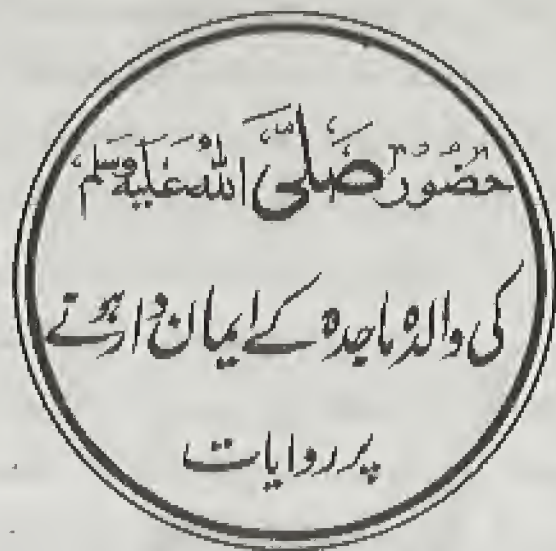 حضور صَلَّی اللہ عَلَیہ وَسلم
کی والدہ ماجدہ کے ایمان دار ہونے
پر روایات